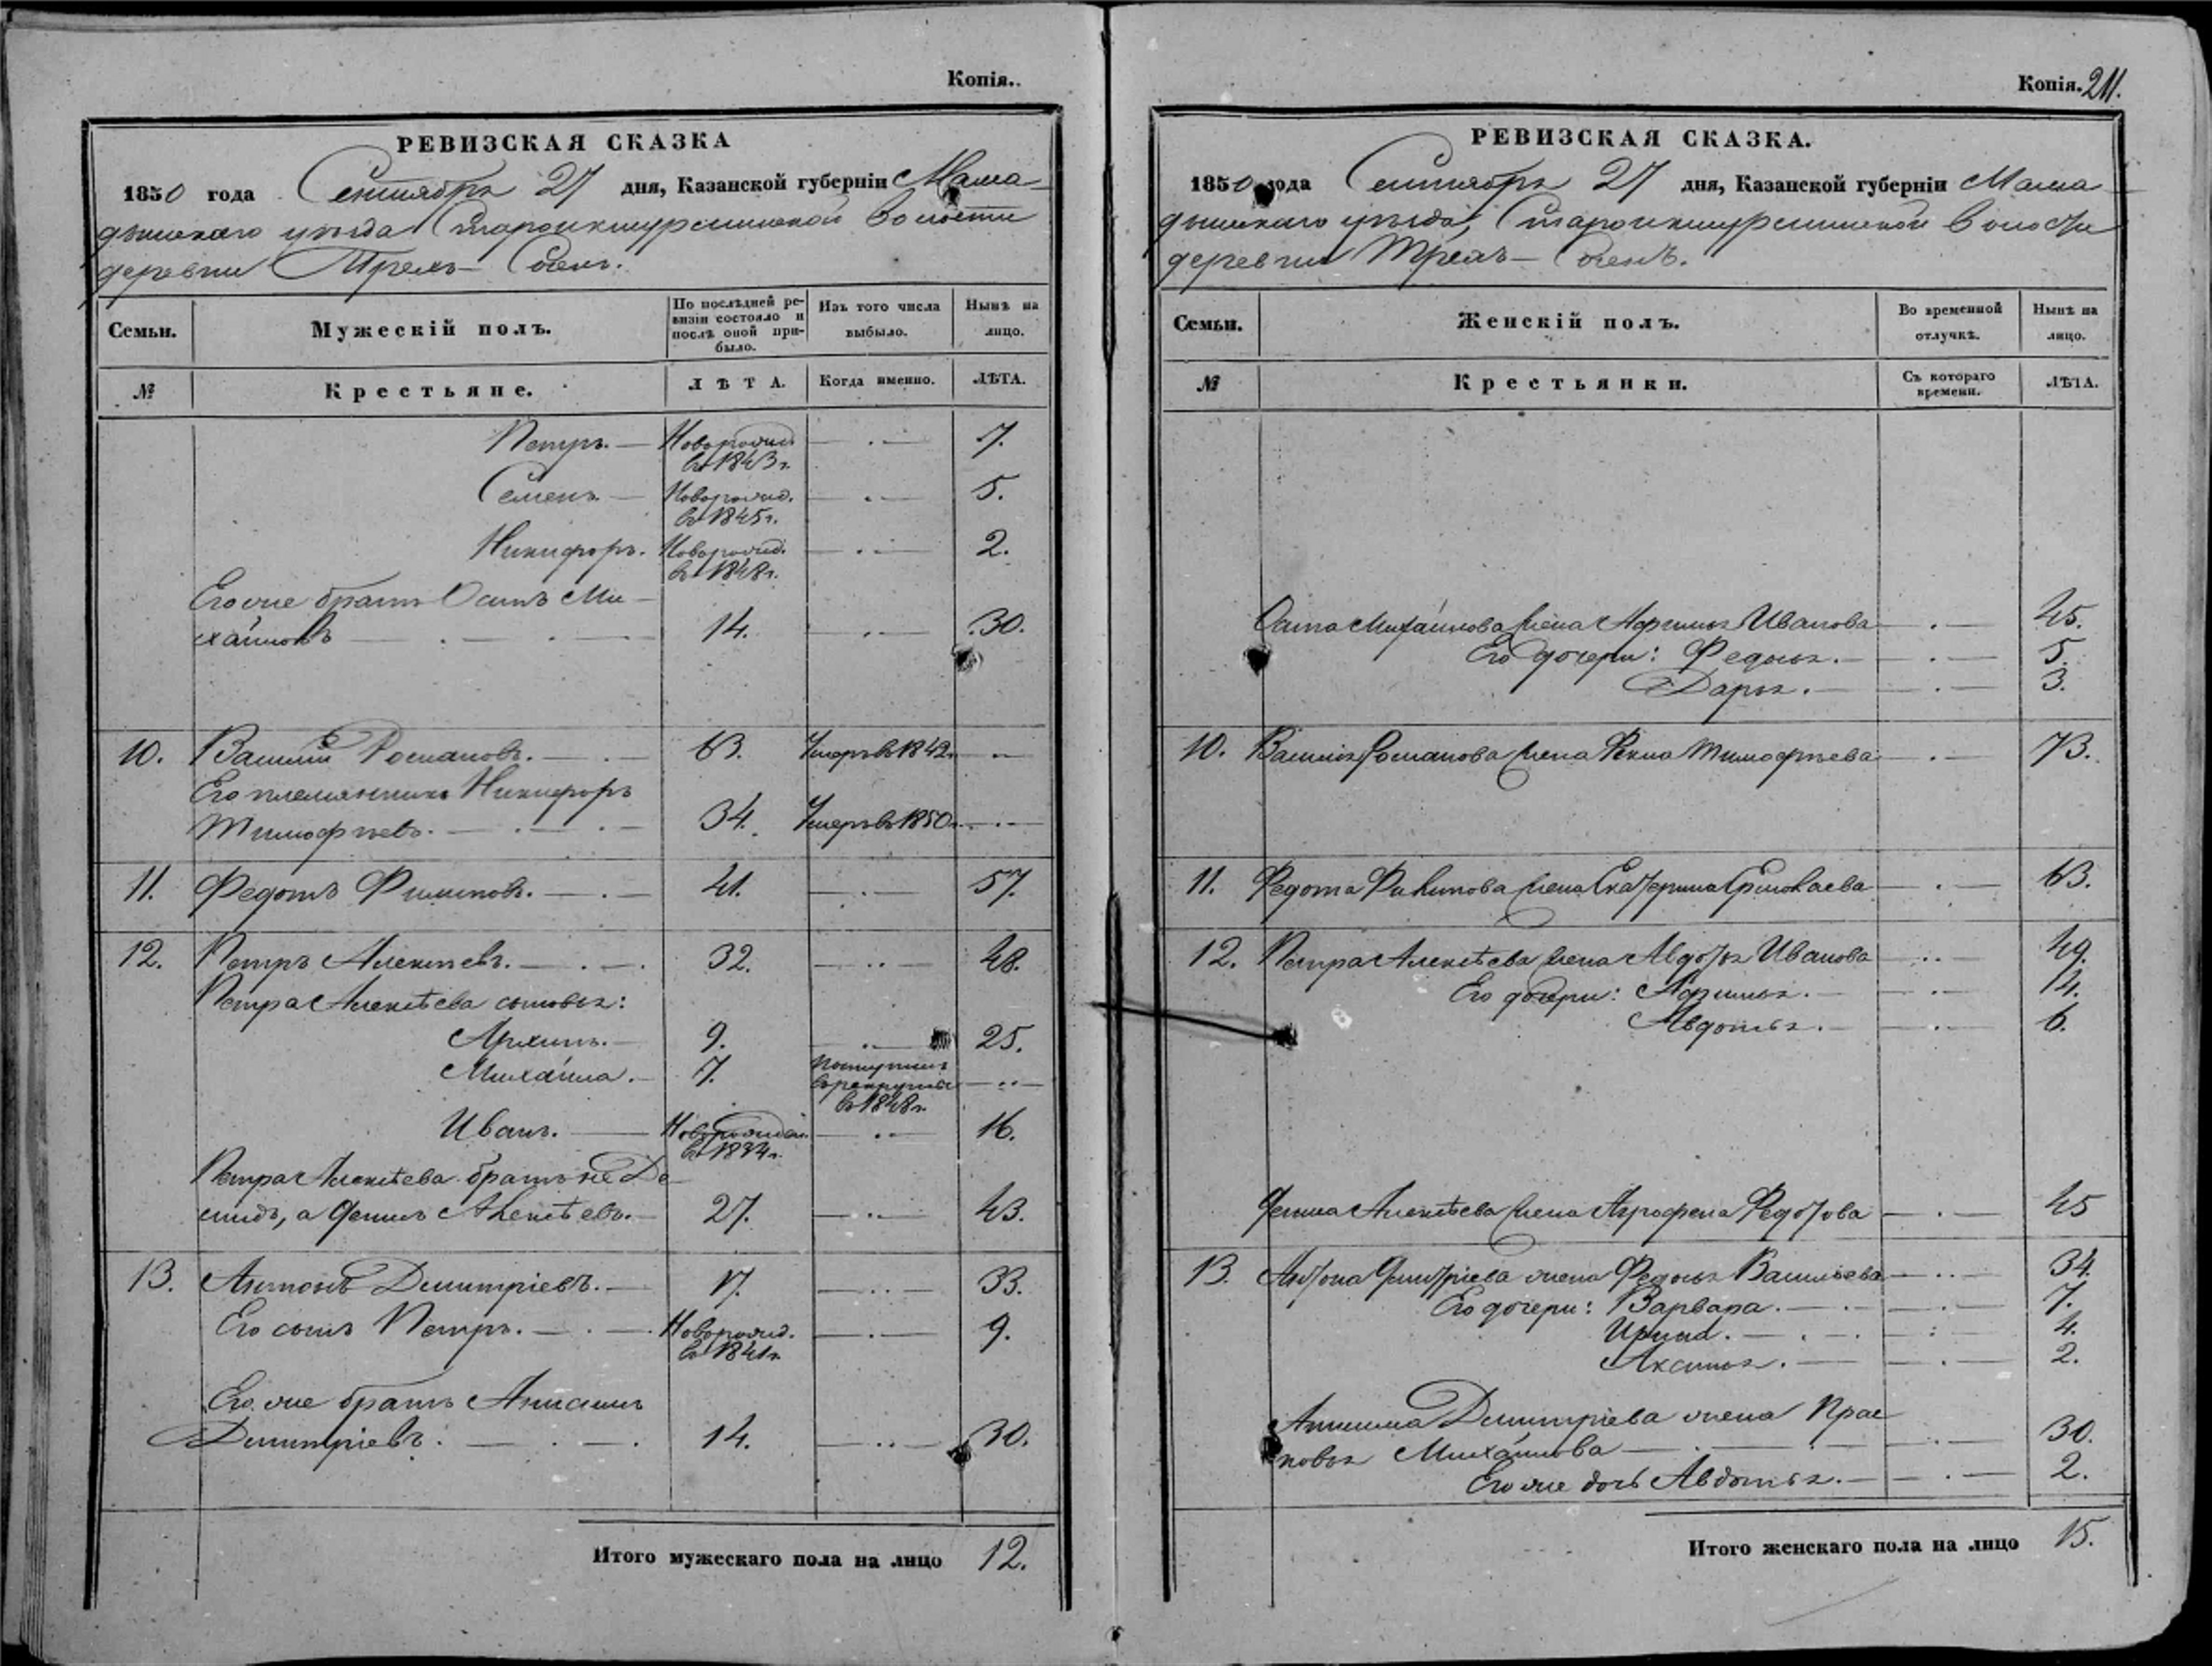 Копія.
РЕВИЗСКАЯ СКАЗКА
1850 года Сентября 27 дня, Казанской губерніи Мама-
дышскаго уѣзда Староикшурминской волости
деревни Трехъ-Сосенъ.
Семьи. Мужескій полъ. По послѣдней ре-визіи состояло и послѣ оной при-было. Изъ того числа выбыло. Нынѣ на лицо.
№ Крестьяне. ЛѢТА. Когда именно. ЛѢТА.
Петръ. — Новорожд. въ 1843 г. — 7.
Семенъ. — Новорожд. въ 1845 г. — 5.
Никифоръ. Новорожд. въ 1848 г. — 2.
Его же братъ Осипъ Ми-
хайловъ — 14. — 30.
10. Василий Романовъ. — 63. Умеръ въ 1842 г. —
Его племянникъ Никифоръ
Тимофѣевъ. — 34. Умеръ въ 1850 г. —
11. Федотъ Филиповъ. — 41. — 57.
12. Петръ Алексѣевъ. — 32. — 48.
Петра Алексѣева сыновья:
Архипъ. — 9. — 25.
Михайла. — 7. Поступилъ въ рекруты въ 1848 г. —
Иванъ. — Новорожден. въ 1834 г. — 16.
Петра Алексѣева братъ не Де-
мидъ, а Фенил Алексѣевъ. — 27. — 43.
13. Антонъ Димитріевъ. — 17. — 33.
Его сынъ Петръ. — Новорожд. въ 1841 г. — 9.
Его же братъ Анисимъ
Димитріевъ. — 14. — 30.
Итого мужескаго пола на лицо 12.
Копія. 211.
РЕВИЗСКАЯ СКАЗКА.
1850 года Сентября 27 дня, Казанской губерніи Мама-
дышскаго уѣзда, Староикшурминской волости
деревни Трехъ-Сосенъ.
Семьи. Женскій полъ. Во временной отлучкѣ. Нынѣ на лицо.
№ Крестьянки. Съ котораго времени. ЛѢТА.
Осипа Михайлова жена Афимья Иванова — 45.
Его дочери: Федосья. — 5.
Дарья. — 3.
10. Василья Романова жена Фекла Тимофѣева — 73.
11. Федота Филипова жена Екатерина Ермолаева — 63.
12. Петра Алексѣева жена Авдотья Иванова — 49.
Его дочери: Афимья. — 14.
Авдотья. — 6.
Алексѣева жена Аграфена Федотова — 45
13. Антона Дмитріева жена Федосья Васильева — 34.
Его дочери: Варвара. — 7.
Ирина. — 4.
Аксинья. — 2.
Анисима Димитріева жена Прас-
ковья Михайлова — 30.
Его же дочь Авдотья. — 2.
Итого женскаго пола на лицо 15.